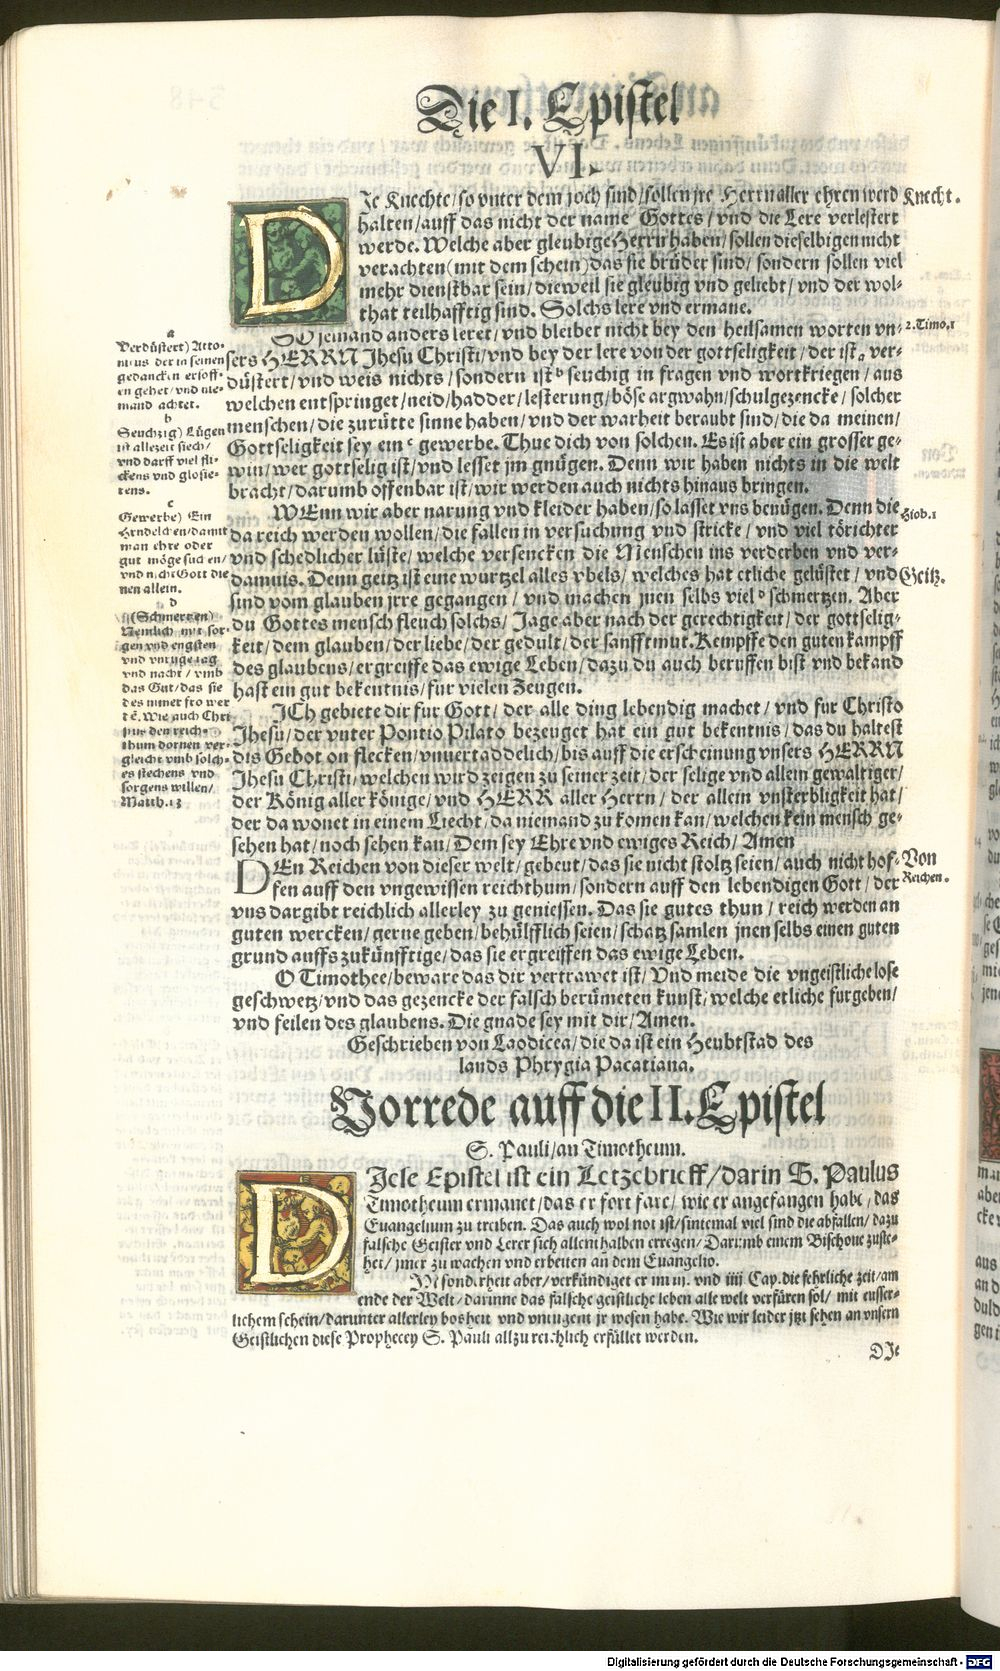 Die I. Epistel
VI.
DIe Knechte/so vnter dem joch sind/sollen jre Herrn aller ehren werd
halten/auff das nicht der name Gottes/vnd die Lere verlestert
werde. Welche aber gleubige Herrn haben/sollen dieselbigen nicht
verachten (mit dem schein) das sie brüder sind/sondern sollen viel
mehr dienstbar sein/dieweil sie gleubig vnd geliebt/vnd der wol-
that teilhafftig sind. Solchs lere vnd ermane.
SO jemand anders leret/vnd bleibet nicht bey den heilsamen worten vn-
sers HERRN Jhesu Christi/vnd bey der lere von der gottseligkeit/der ist a ver-
düstert/vnd weis nichts/sondern ist b seuchig in fragen vnd wortkriegen/aus
welchen entspringet/neid/hadder/lesterung/böse argwahn/schulgezencke/solcher
menschen/die zurütte sinne haben/vnd der warheit beraubt sind/die da meinen/
Gottseligkeit sey ein c gewerbe. Thue dich von solchen. Es ist aber ein grosser ge-
win/wer gottselig ist/vnd lesset jm gnügen. Denn wir haben nichts in die welt
bracht/darumb offenbar ist/wir werden auch nichts hinaus bringen.
WEnn wir aber narung vnd kleider haben/so lasset vns benügen. Denn die
da reich werden wollen/die fallen in versuchung vnd stricke/vnd viel törichter
vnd schedlicher lüste/welche versencken die Menschen ins verderben vnd ver-
damnis. Denn geitz ist eine wurtzel alles vbels/welches hat etliche gelüstet/vnd
sind vom glauben jrre gegangen/vnd machen jnen selbs viel d schmertzen. Aber
du Gottes mensch fleuch solchs/Jage aber nach der gerechtigkeit/der gottselig-
keit/dem glauben/der liebe/der gedult/der sanfftmut. Kempffe den guten kampff
des glaubens/ergreiffe das ewige Leben/dazu du auch beruffen bist vnd bekand
hast ein gut bekentnis/fur vielen Zeugen.
ICh gebiete dir fur Gott/der alle ding lebendig machet/vnd fur Christo
Jhesu/der vnter Pontio Pilato bezeuget hat ein gut bekentnis/das du haltest
dis Gebot on flecken/vnuertaddelich/bis auff die erscheinung vnsers HERRN
Jhesu Christi/welchen wird zeigen zu seiner zeit/der selige vnd allein gewaltiger/
der König aller könige/vnd HERR aller Herrn/der allein vnsterbligkeit hat/
der da wonet in einem Liecht/da niemand zu komen kan/welchen kein mensch ge-
sehen hat/noch sehen kan/Dem sey Ehre vnd ewiges Reich/Amen
DEn Reichen von dieser welt/gebeut/das sie nicht stoltz seien/auch nicht hof-
fen auff den vngewissen reichthum/sondern auff den lebendigen Gott/der
vns dargibt reichlich allerley zu geniessen. Das sie gutes thun/reich werden an
guten wercken/gerne geben/behülfflich seien/schatz samlen jnen selbs einen guten
grund auffs zukünfftige/das sie ergreiffen das ewige Leben.
O Timothee/beware das dir vertrawet ist/Vnd meide die vngeistliche lose
geschwetz/vnd das gezencke der falsch berümeten kunst/welche etliche furgeben/
vnd feilen des glaubens. Die gnade sey mit dir/Amen.
Geschrieben von Laodicea/die da ist ein Heubtstad des
lands Phrygia Pacatiana.
Knecht.
2. Timo. 1
Hiob. 1
Geitz.
Von
Reichen.
a
Verdüstert) Atto-
nitus der in seinen
gedancken ersoff-
en gehet/vnd nie-
mand achtet.
b
Seuchzig) Lügen
ist allezeit siech/
vnd darff viel fli-
ckens vnd glosie-
rens.
c
Gewerbe) Ein
Hendelchen/damit
man ehre oder
gut möge suchen/
vnd nicht Gott die
nen allein.
d
(Schmertzen)
Nemlich mit sor-
gen vnd engsten
vnd vnruge tag
vnd nacht/vmb
das Gut/das sie
des nimer fro wer
dē. Wie auch Chri
stus den reich-
thum dornen ver-
gleicht vmb solch-
es stechens vnd
sorgens willen/
Matth. 13
Vorrede auff die II. Epistel
S. Pauli/an Timotheum.
DIese Epistel ist ein Letzebrieff/darin S. Paulus
Timotheum ermanet/das er fort fare/wie er angefangen habe/das
Euangelium zu treiben. Das auch wol not ist/sintemal viel sind die abfallen/dazu
falsche Geister vnd Lerer sich allenthalben erregen/Darumb einem Bischoue zuste-
het/jmer zu wachen vnd erbeiten an dem Euangelio.
INsonderheit aber/verkündiget er im iij. vnd iiij Cap. die fehrliche zeit/am
ende der Welt/darinne das falsche geistliche leben alle welt verfüren sol/mit eusser-
lichem schein/darunter allerley bosheit vnd vntugent jr wesen habe. Wie wir leider jtzt sehen an vnsern
Geistlichen diese Prophecey S. Pauli allzu reichlich erfüllet werden.
DIe
Digitalisierung gefördert durch die Deutsche Forschungsgemeinschaft - DFG